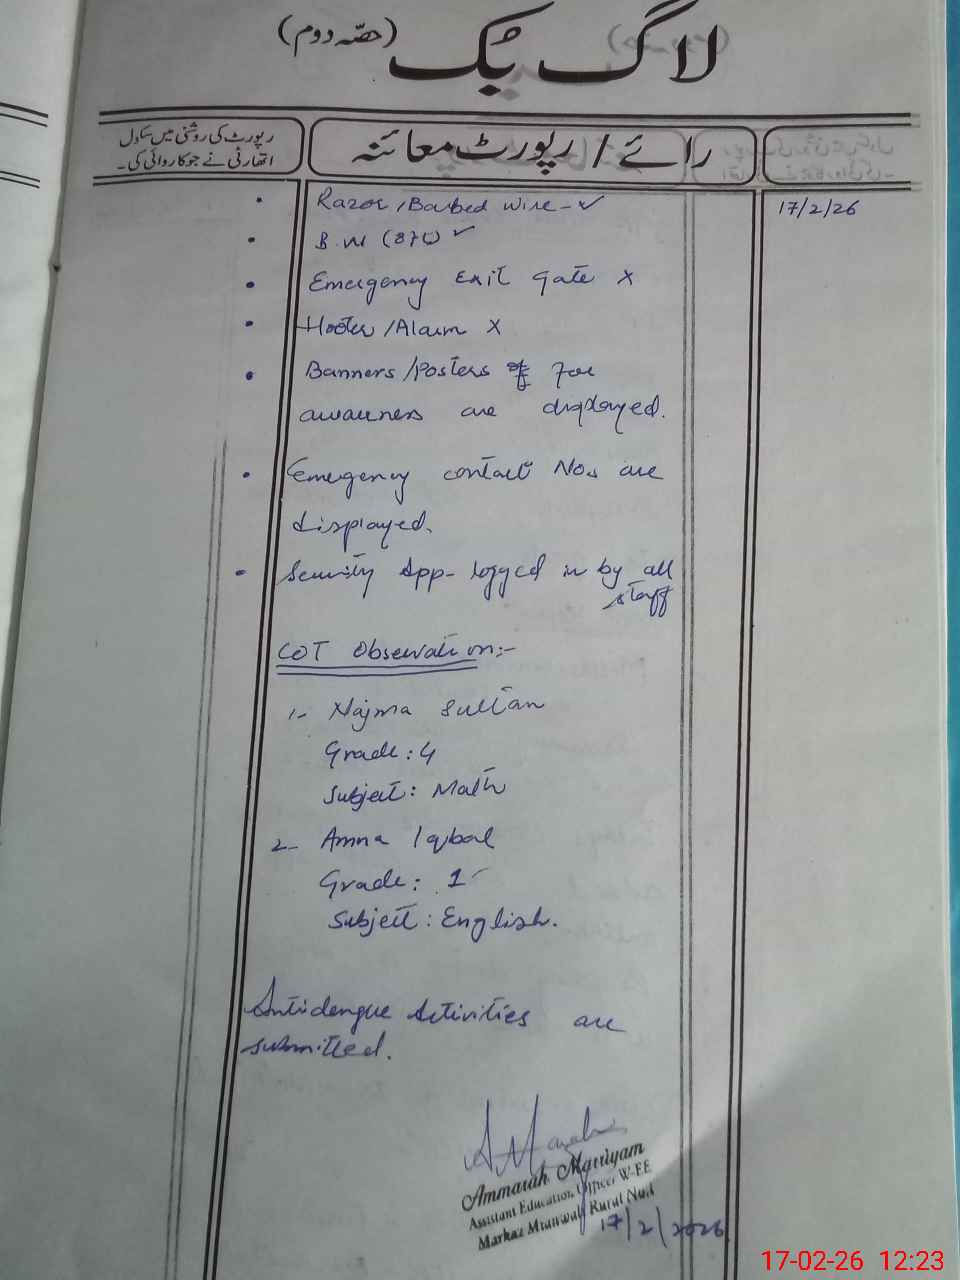 لاگ بک (حصّہ دوم)
رپورٹ کی روشنی میں سکول اتھارٹی نے جو کاروائی کی۔
رائے / رپورٹ معائنہ
17/2/26
• Razor/Barbed wire - ✓
• B.W (8ft) ✓
• Emergency Exit Gate x
• Hooter/Alarm x
• Banners/Posters for
awarness are displayed.
• Emergency contact Nos are
displayed.
• Security App- logged in by all
staff
COT Observation:-
1- Najma Sultan
Grade: 4
Subject: Math
2- Amna Iqbal
Grade: 1
Subject: English.
Antidengue Activities are
submitted.
Ammarah Marriyam
Assistant Education Officer W-EE
Markaz Mianwali Rural No.1
17/2/2026
17-02-26 12:23